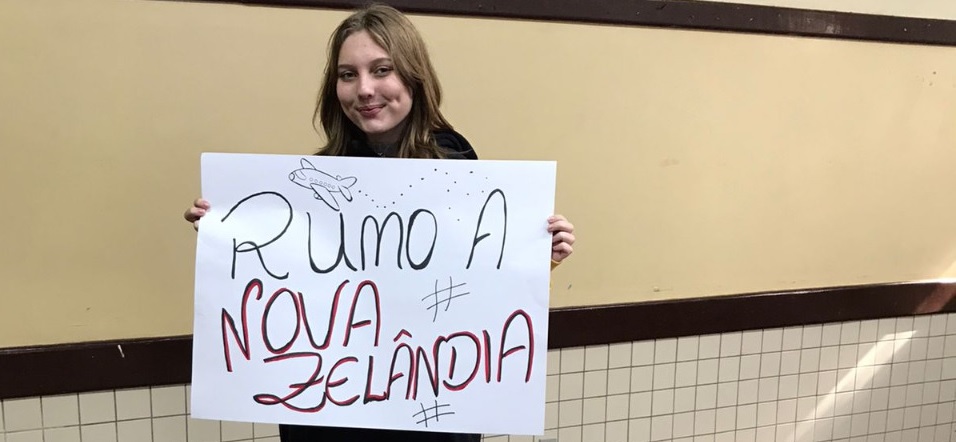 RUMO A
NOVA #
ZELÂNDIA
#